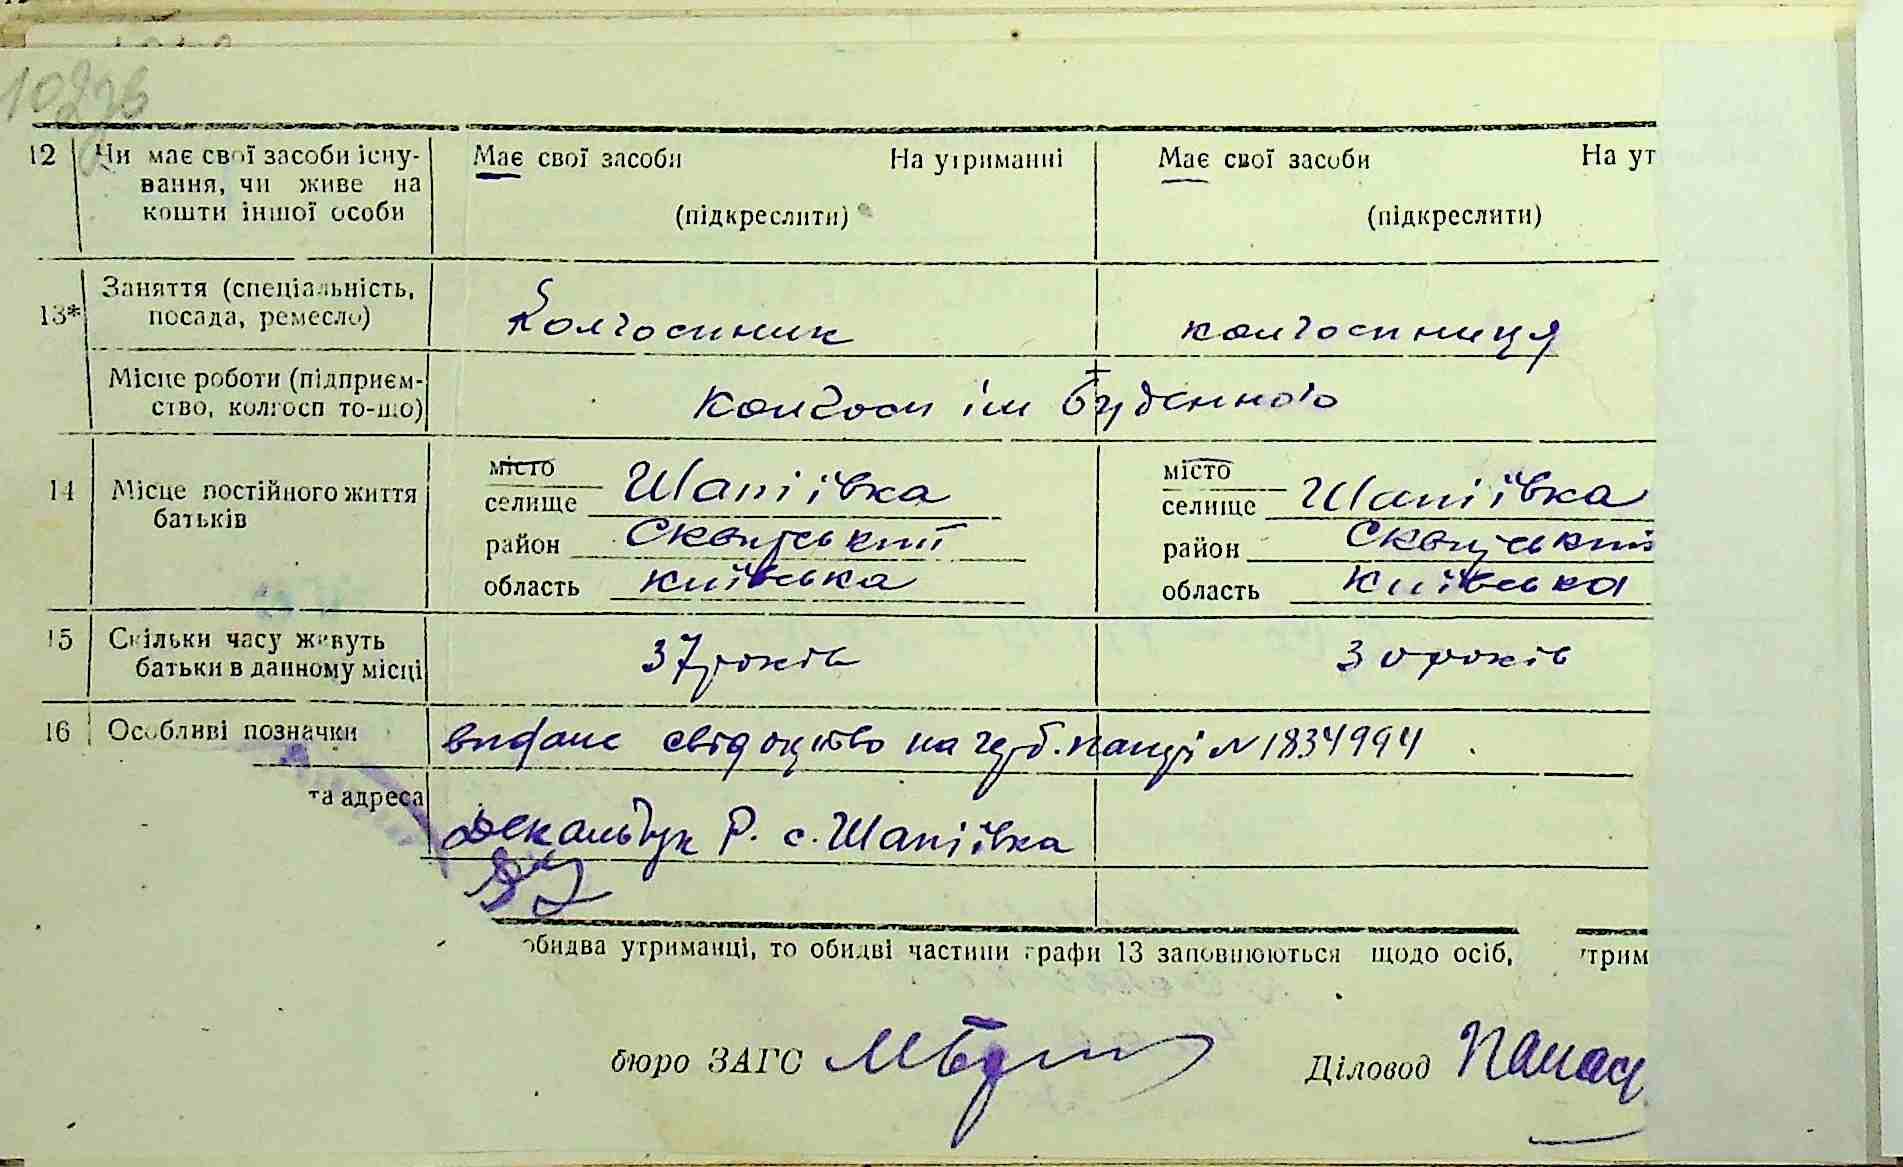 102зв
12 Чи має свої засоби існу- Має свої засоби На утриманні Має свої засоби На ут
вання, чи живе на
кошти іншої особи (підкреслити) (підкреслити)
13* Заняття (спеціальність,
посада, ремесло) Колгоспник колгоспниця
Місце роботи (підприєм-
ство, колгосп то-що) Колгосп ім Буденного
14 Місце постійного життя
батьків
місто місто
селище Шапіївка селище Шапіївка
район Сквирський район Сквирський
область київська область київська
15 Скільки часу живуть
батьки в данному місці 37 років 30 років
16 Особливі позначки видане свідоцтво на герб. папері № 1834994
та адреса
Декальчук Р. с. Шапіївка
обидва утриманці, то обидві частини графи 13 заповнюються щодо осіб, утрим
бюро ЗАГС Діловод Панас